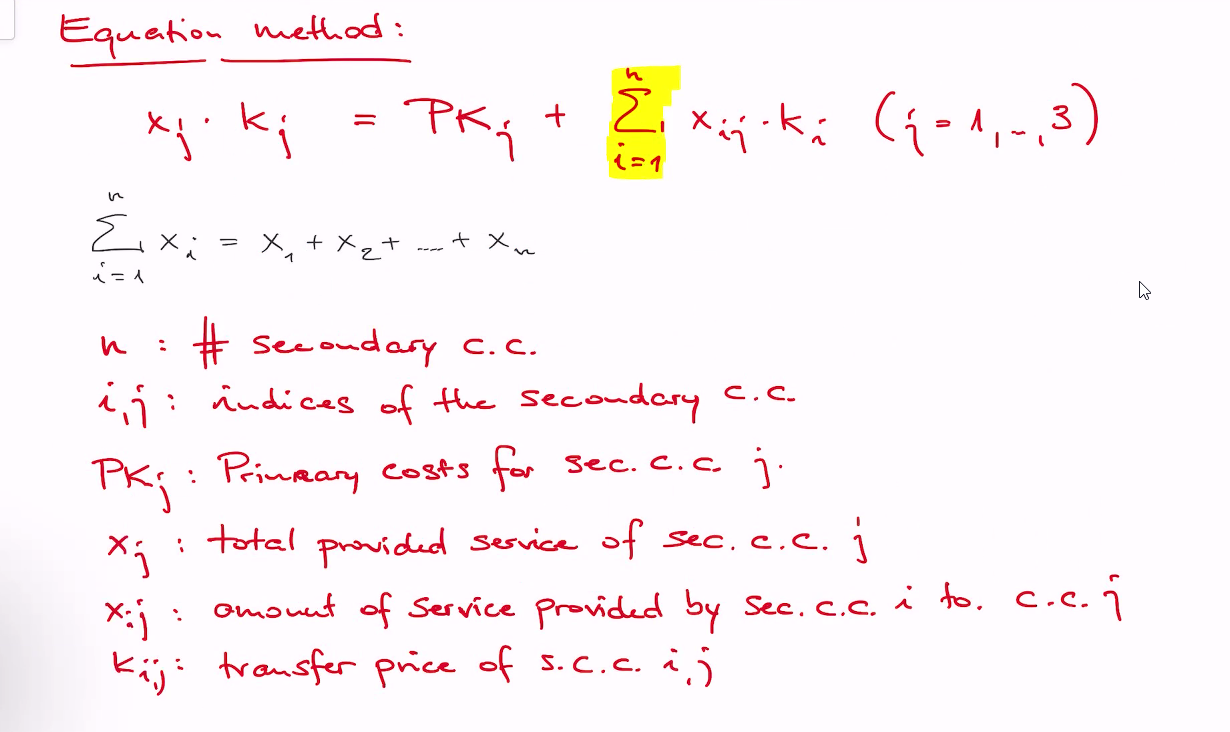 Equation method:
xⱼ · kⱼ = PKⱼ + ∑ⁿᵢ₌₁ xᵢⱼ · kᵢ (j = 1, .., 3)
∑ⁿᵢ₌₁ xᵢ = x₁ + x₂ + .... + xₙ
n : # secondary c.c.
i,j : indices of the secondary c.c.
PKⱼ : Primary costs for sec. c.c. j.
xⱼ : total provided service of sec. c.c. j
xᵢⱼ : amount of service provided by sec. c.c. i to. c.c. j
kᵢ,ⱼ : transfer price of s.c.c. i,j